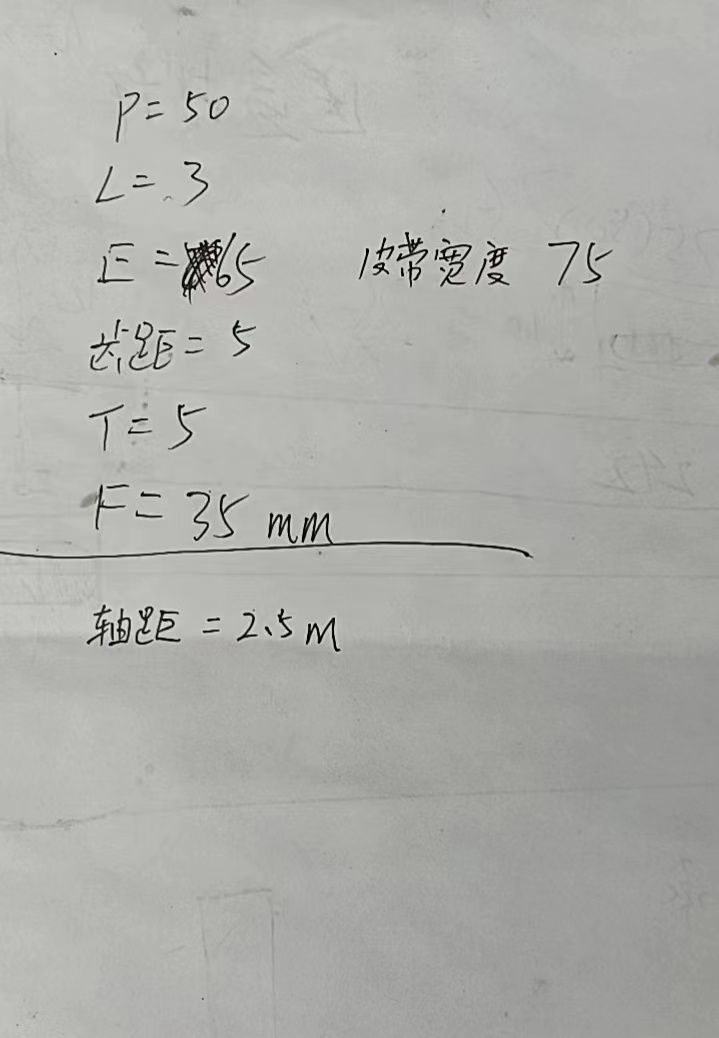 P=50
L=3
E=65 皮带宽度 75
齿距=5
T=5
F=35 mm
轴距=2.5m